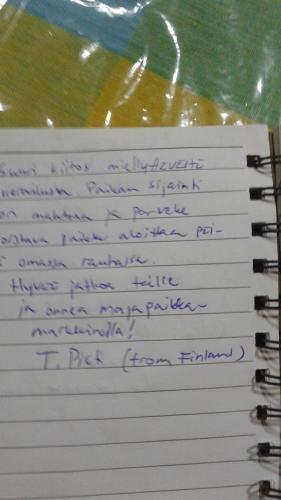 Suuri kiitos miellyttävästä
vierailusta. Paikan sijainti
on mahtava ja parveke
loistava paikka aloittaa päi-
omassa rauhassa.
Hyvää jatkoa teille
ja onnea majapaikka-
markkinoilla!
T. Pick (from Finland)